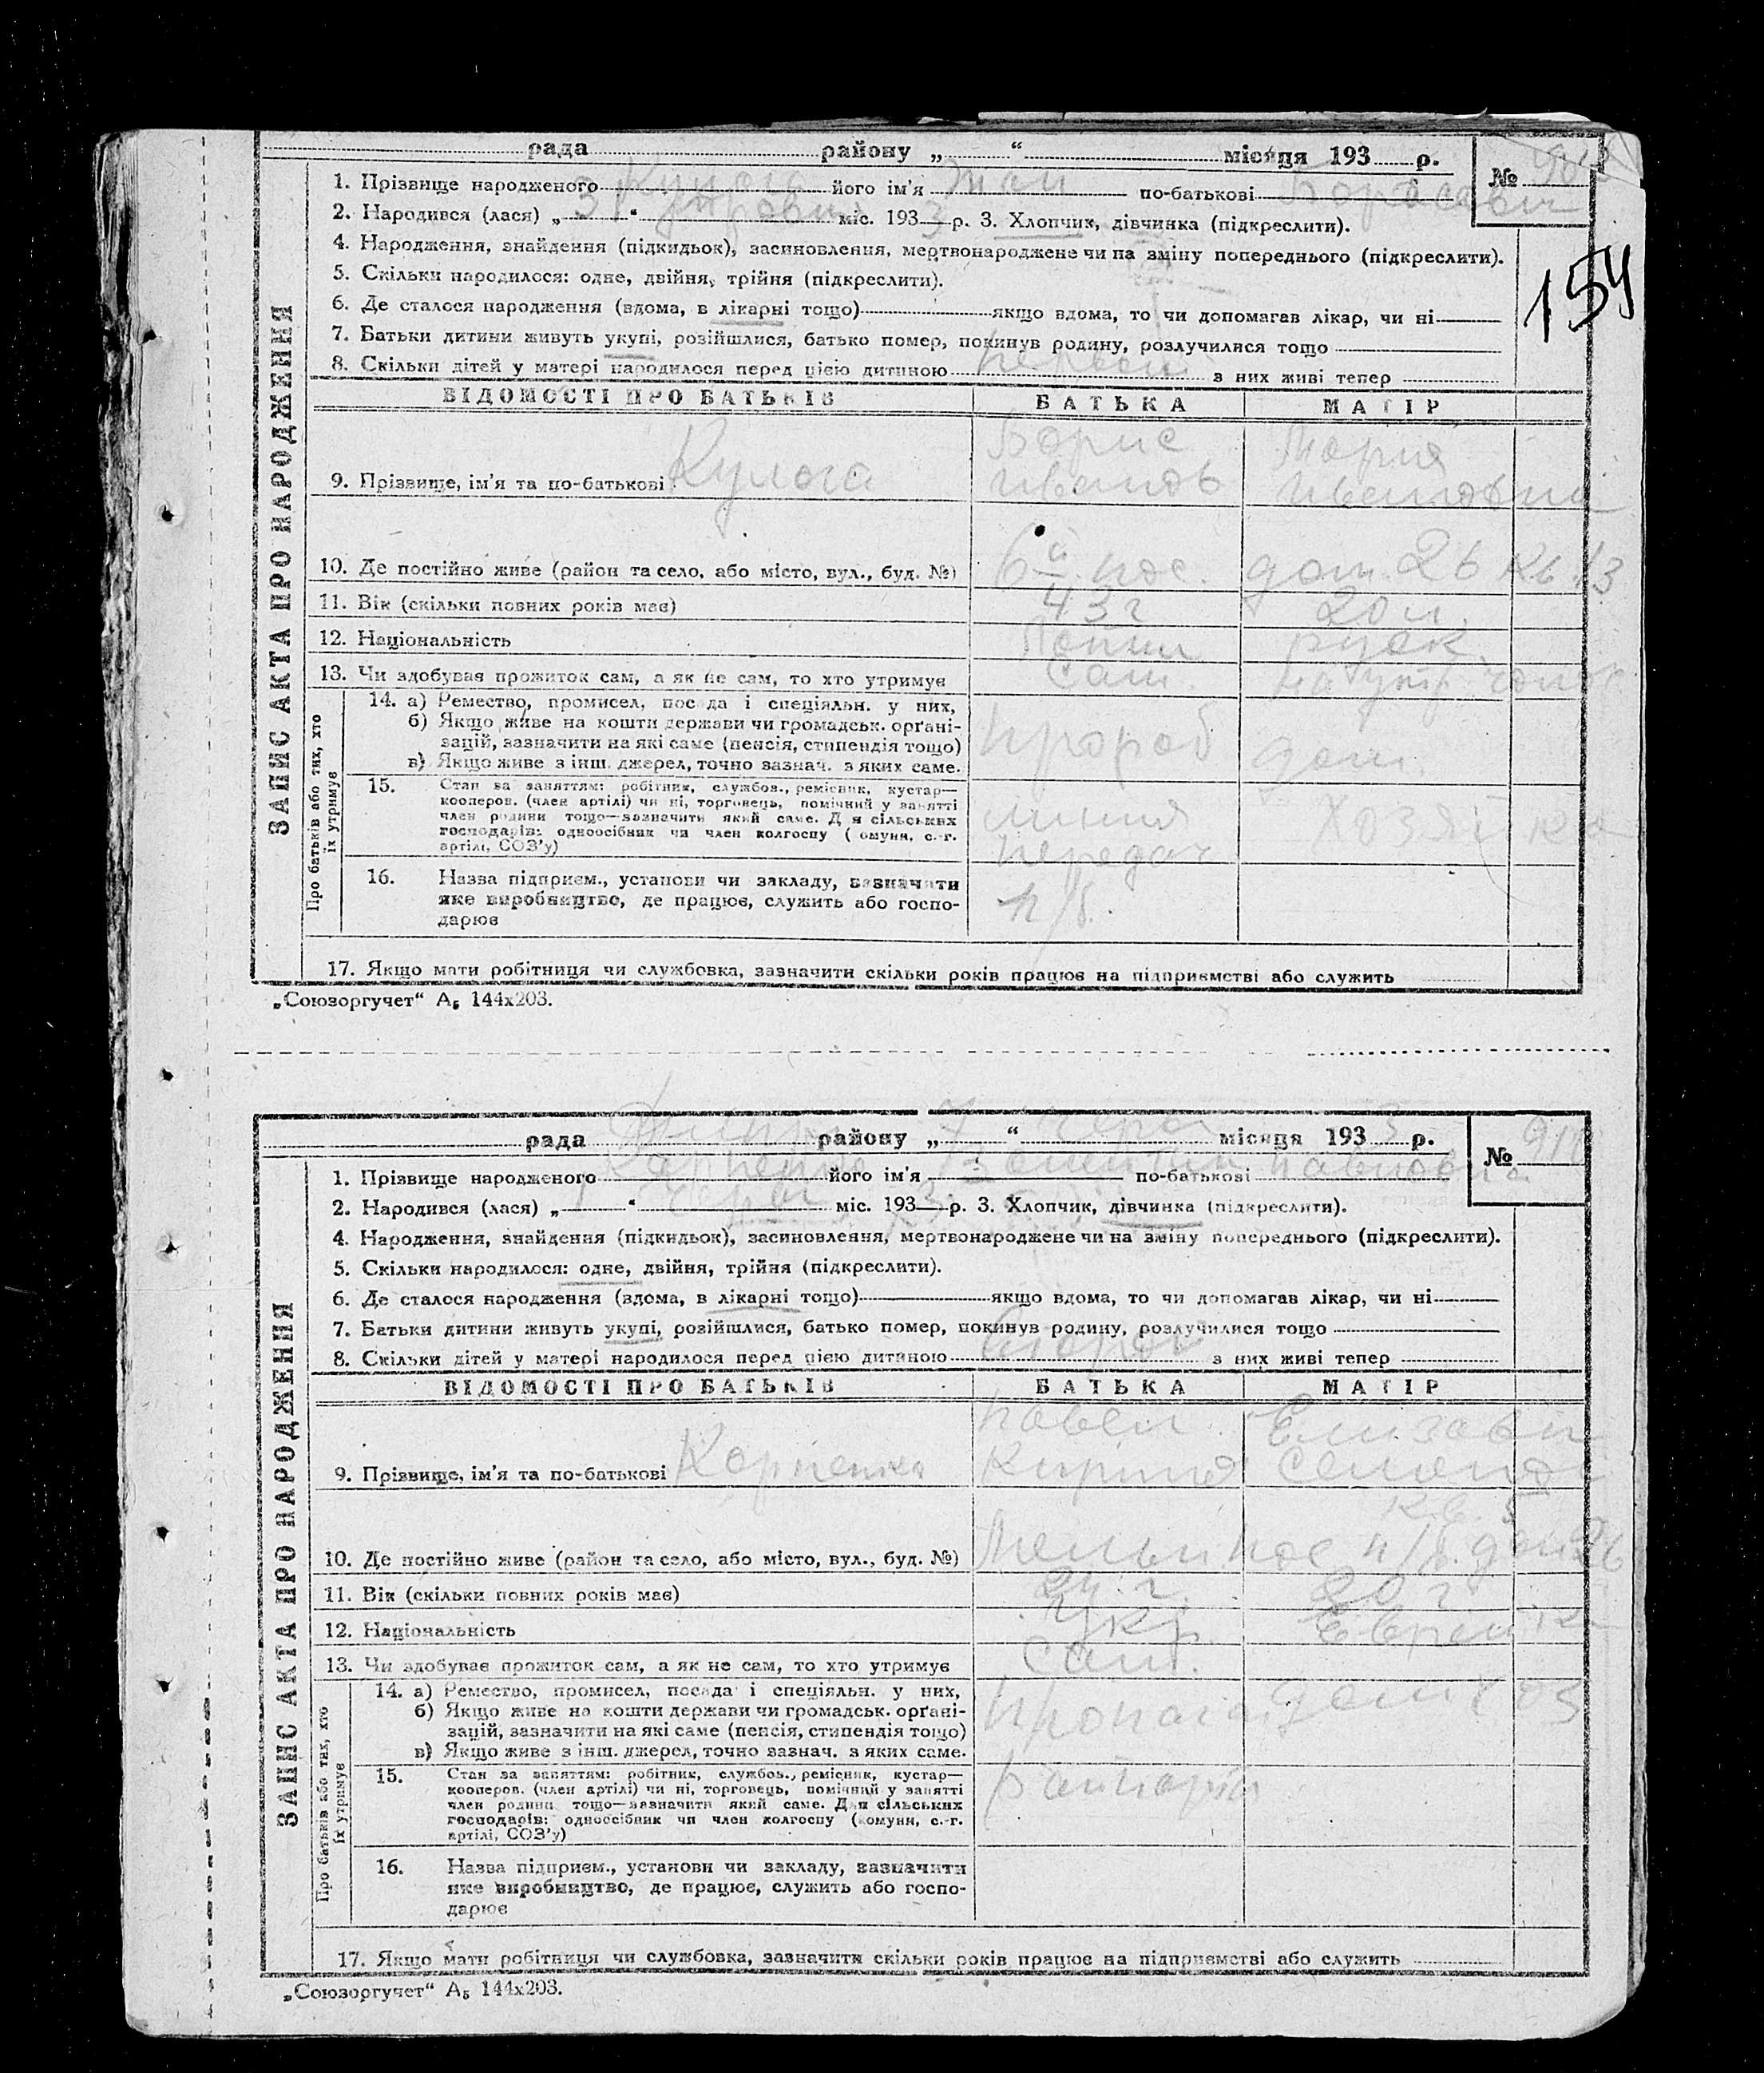 рада району „ “ місяця 193 р. №
1. Прізвище народженого Кулага його ім'я по-батькові Борисович
2. Народився (лася) „ 31 “ міс. 1933 р. 3. Хлопчик, дівчинка (підкреслити).
4. Народження, знайдення (підкидьок), засиновлення, мертвонароджене чи на зміну попереднього (підкреслити).
5. Скільки народилося: одне, двійня, трійня (підкреслити).
154
6. Де сталося народження (вдома, в лікарні тощо) якщо вдома, то чи допомагав лікар, чи ні
7. Батьки дитини живуть укупі, розійшлися, батько помер, покинув родину, розлучилися тощо
8. Скільки дітей у матері народилося перед цією дитиною з них живі тепер
ВІДОМОСТІ ПРО БАТЬКІВ БАТЬКА МАТІР
Борис Мария
9. Прізвище, ім'я та по-батькові Кулага
10. Де постійно живе (район та село, або місто, вул., буд. №) 6й пос. дом. 26 кв 13
11. Вік (скільки повних років має) 43 г 20 л.
12. Національність руск.
13. Чи здобував прожиток сам, а як не сам, то хто утримує Сам.
14. а) Ремество, промисел, посада і спеціяльн. у них,
б) Якщо живе на кошти держави чи громадськ. органі-
зацій, зазначити на які саме (пенсія, стипендія тощо) прораб дом.
в) Якщо живе з інш. джерел, точно зазнач. з яких саме.
15. Стан за заняттям: робітник, службов., ремісник, кустар—
кооперов. (член артілі) чи ні, торговець, помічний у занятті
член родини тощо—зазначити який саме. Для сільських линия хозяйка
господарів: одноосібник чи член колгоспу (комуни, с.-г.
артілі, СОЗ'у) передач
16. Назва підприєм., установи чи закладу, зазначити
яке виробництво, де працює, служить або госпо-
дарює
17. Якщо мати робітниця чи службовка, зазначити скільки років працює на підприємстві або служить
ЗАПИС АКТА ПРО НАРОДЖЕННЯ
Про батьків або тих, хто
їх утримує
„Союзоргучет“ А₅ 144х203.
рада району „ 7 “ місяця 1933 р. № 911
1. Прізвище народженого Карпенко його ім'я по-батькові Павловна
2. Народився (лася) „ “ міс. 193 р. 3. Хлопчик, дівчинка (підкреслити).
4. Народження, знайдення (підкидьок), засиновлення, мертвонароджене чи на зміну попереднього (підкреслити).
5. Скільки народилося: одне, двійня, трійня (підкреслити).
6. Де сталося народження (вдома, в лікарні тощо) якщо вдома, то чи допомагав лікар, чи ні
7. Батьки дитини живуть укупі, розійшлися, батько помер, покинув родину, розлучилися тощо
8. Скільки дітей у матері народилося перед цією дитиною з них живі тепер
ВІДОМОСТІ ПРО БАТЬКІВ БАТЬКА МАТІР
Павел Елизавет
9. Прізвище, ім'я та по-батькові Карпенко
кв. 5
10. Де постійно живе (район та село, або місто, вул., буд. №) пос дом 26
11. Вік (скільки повних років має) 24 г. 20 г
12. Національність Укр. Еврейка
13. Чи здобуває прожиток сам, а як не сам, то хто утримує Сам.
14. а) Ремество, промисел, посада і спеціяльн. у них,
б) Якщо живе на кошти держави чи громадськ. органі-
зацій, зазначити на які саме (пенсія, стипендія тощо) дом хоз
в) Якщо живе з інш. джерел, точно зазнач. з яких саме.
15. Стан за заняттям: робітник, службов., ремісник, кустар—
кооперов. (член артілі) чи ні, торговець, помічний у занятті
член родини тощо—зазначити який саме. Для сільських
господарів: одноосібник чи член колгоспу (комуни, с.-г.
артілі, СОЗ'у)
16. Назва підприєм., установи чи закладу, зазначити
яке виробництво, де працює, служить або госпо-
дарює
17. Якщо мати робітниця чи службовка, зазначити скільки років працює на підприємстві або служить
ЗАПИС АКТА ПРО НАРОДЖЕННЯ
Про батьків або тих, хто
їх утримує
„Союзоргучет“ А₅ 144х203.